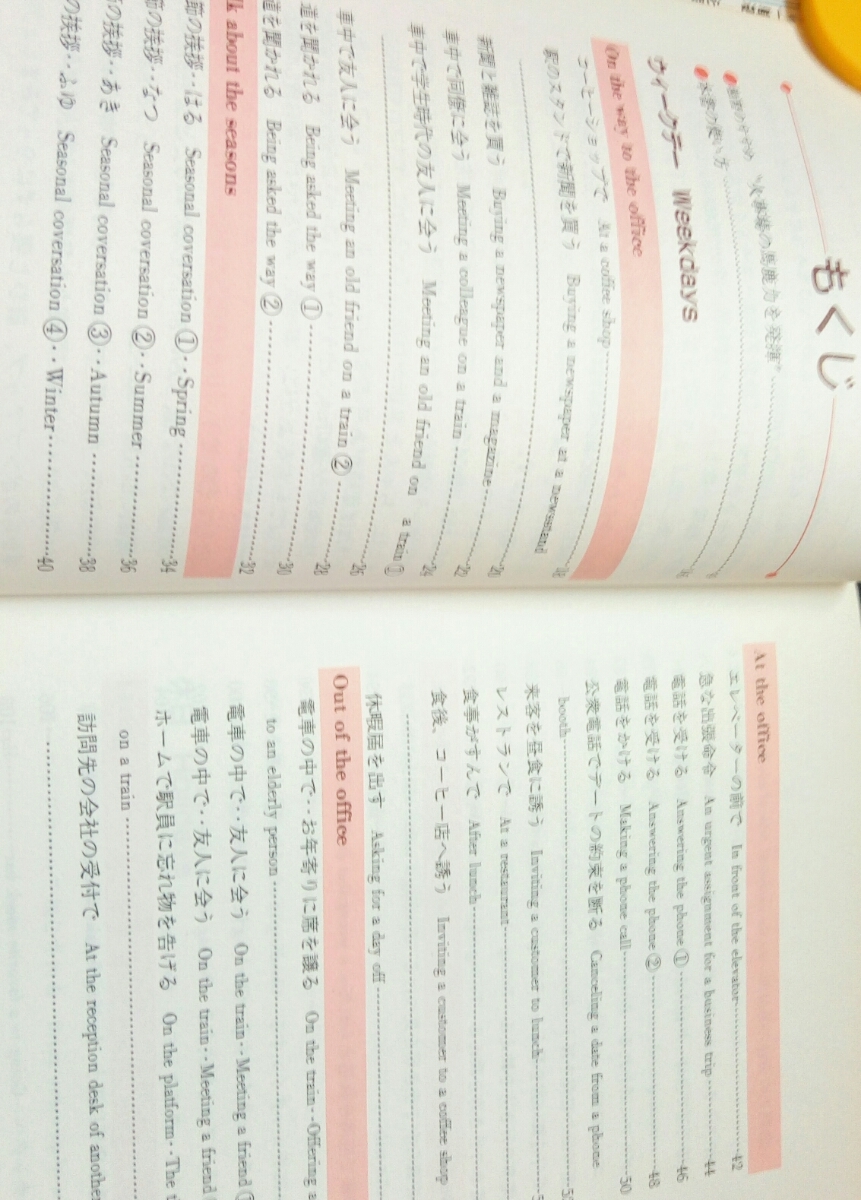 もくじ
"火事場の馬鹿力を発揮"
本書の使い方
ウィークデー Weekdays
On the way to the office
コーヒーショップで At a coffee shop 18
駅のスタンドで新聞を買う Buying a newspaper at a newsstand
新聞と雑誌を買う Buying a newspaper and a magazine 20
車中で同僚に会う Meeting a colleague on a train 22
車中で学生時代の友人に会う Meeting an old friend on a train ① 24
車中で友人に会う Meeting an old friend on a train ② 26
道を聞かれる Being asked the way ① 28
道を聞かれる Being asked the way ② 30
k about the seasons 32
節の挨拶‥はる Seasonal coversation ①‥Spring 34
節の挨拶‥なつ Seasonal coversation ②‥Summer 36
の挨拶‥あき Seasonal coversation ③‥Autumn 38
の挨拶‥ふゆ Seasonal coversation ④‥Winter 40
At the office
エレベーターの前で In front of the elevator 42
急な出張命令 An urgent assignment for a business trip 44
電話を受ける Answering the phone ① 46
電話を受ける Answering the phone ② 48
電話をかける Making a phone call 50
公衆電話でデートの約束を断る Canceling a date from a phone
booth
来客を昼食に誘う Inviting a customer to lunch
レストランで At a restaurant
食事がすんで After lunch
食後、コーヒー店へ誘う Inviting a customer to a coffee shop
休暇届を出す Asking for a day off
Out of the office
電車の中で‥お年寄りに席を譲る On the train‥Offering a
to an elderly person
電車の中で‥友人に会う On the train‥Meeting a friend ①
電車の中で‥友人に会う On the train‥Meeting a friend
ホームで駅員に忘れ物を告げる On the platform‥The
on a train
訪問先の会社の受付で At the reception desk of another